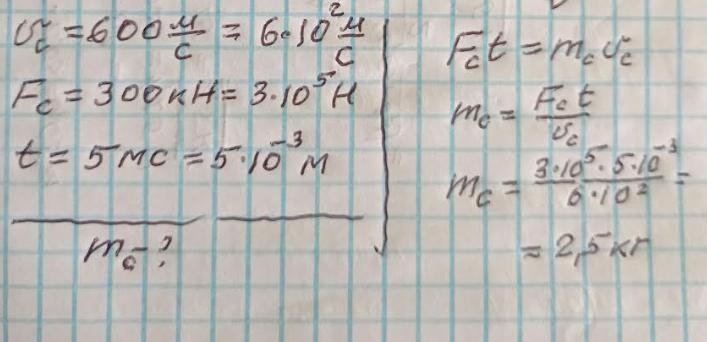 υc = 600 м/с = 6·10² м/с
Fc = 300 кН = 3·10⁵ Н
t = 5 мс = 5·10⁻³ м
mc - ?
Fc t = mc υc
mc = Fc t / υc
mc = 3·10⁵·5·10⁻³ / 6·10² =
= 2,5 кг